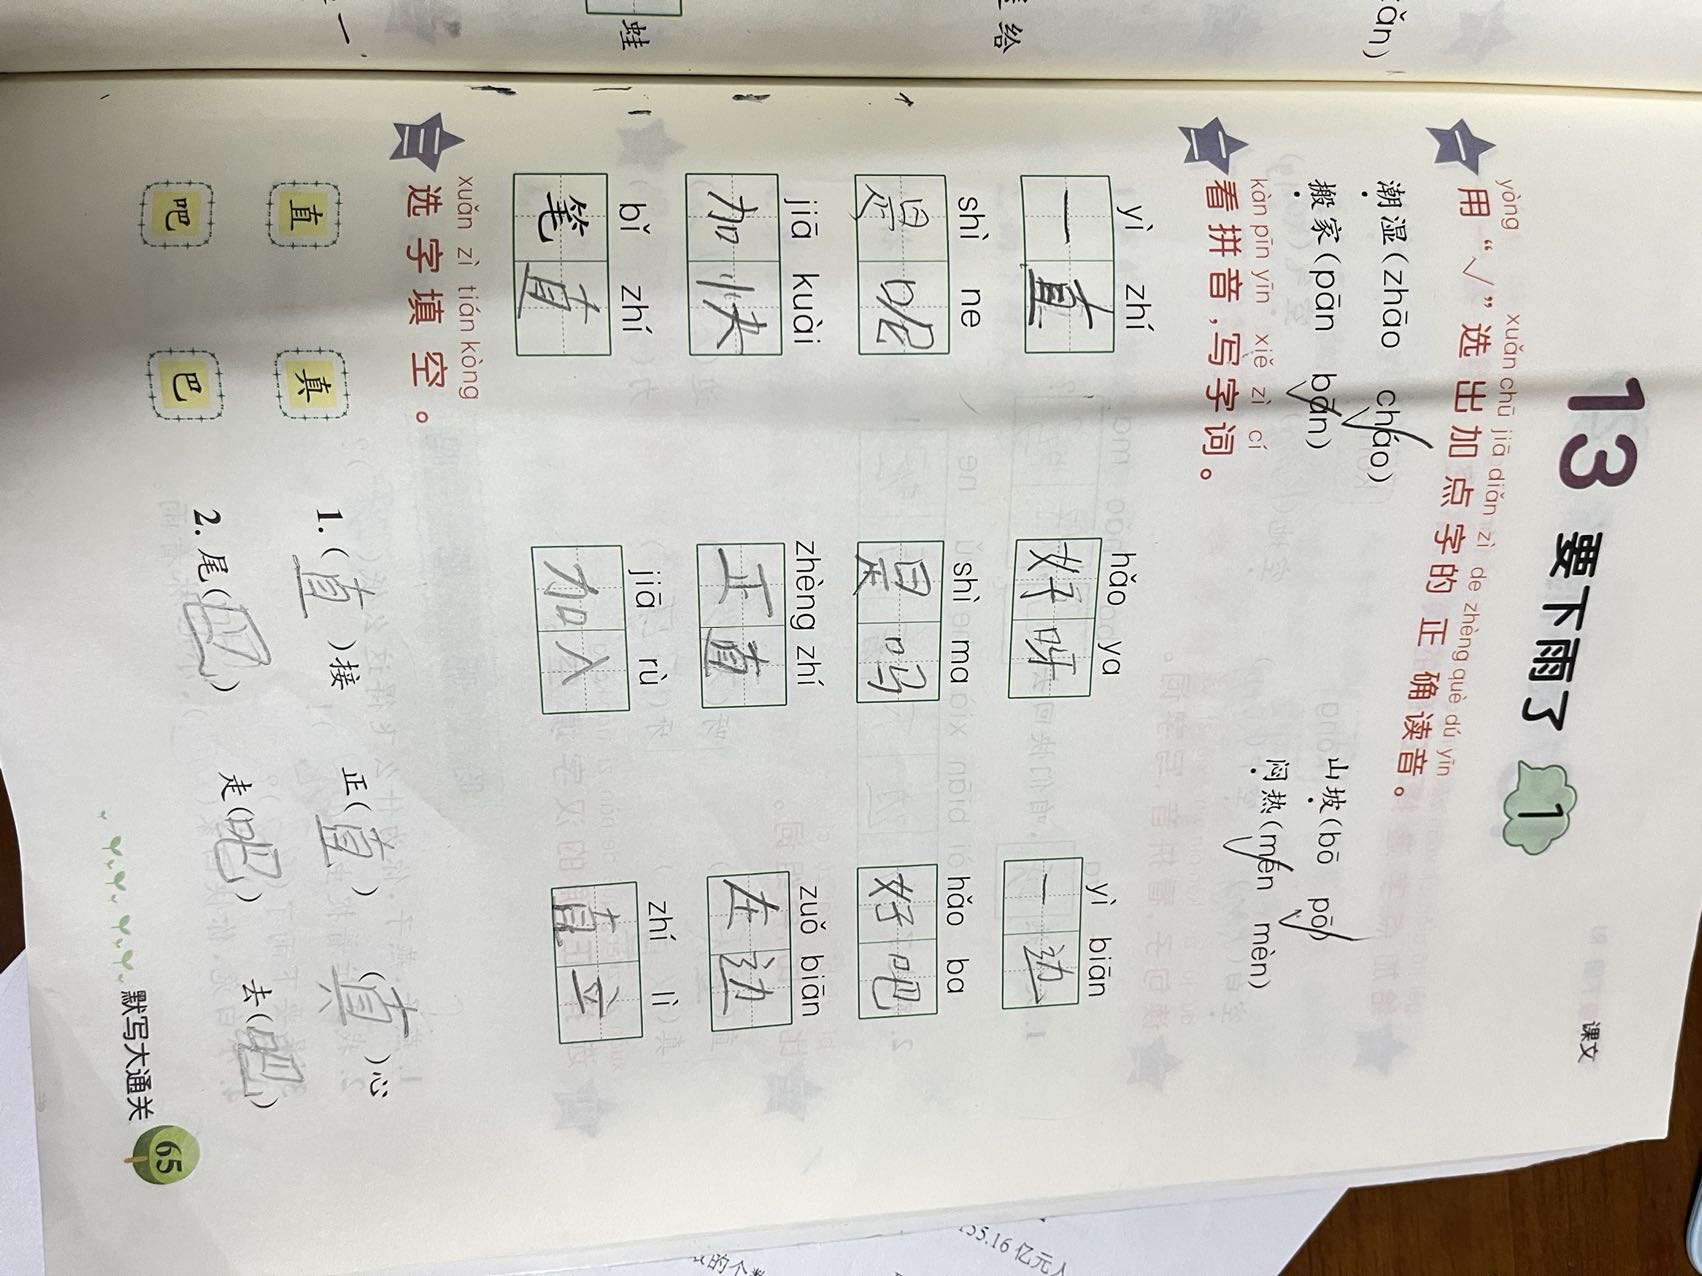 ǎn)
给
蛙
一
课文
13 要下雨了 1
yòng xuǎn chū jiā diǎn zì de zhèng què dú yīn
一 用“√”选出加点字的正确读音。
潮湿(zhāo cháo) 山坡(bō pō)
搬家(pān bān) 闷热(mēn mèn)
kàn pīn yīn xiě zì cí
二 看拼音,写字词。
yì zhí hǎo ya yì biān
一直 好呀 一边
shì ne shì ma hǎo ba
是呢 是吗 好吧
jiā kuài zhèng zhí zuǒ biān
加快 正直 左边
bǐ zhí jiā rù zhí lì
笔直 加入 直立
xuǎn zì tián kòng
三 选字填空。
直 真 1.(直)接 正(直) (真)心
吧 巴 2.尾(巴) 走(吧) 去(吧)
默写大通关 65
155.16 亿元人
的个数